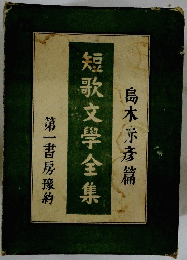 島木赤彦篇
短歌文學全集
第一書房豫約